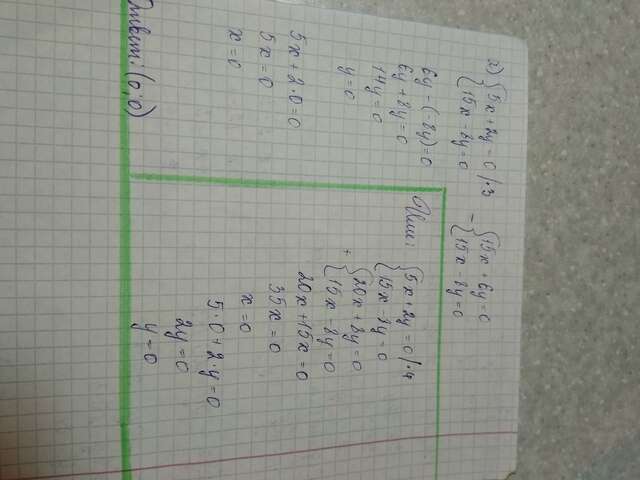 2) {5x + 2y = 0 /·3
{15x - 8y = 0
- {15x + 6y = 0
{15x - 8y = 0
6y - (-8y) = 0
6y + 8y = 0
14y = 0
y = 0
5x + 2·0 = 0
5x = 0
x = 0
Ответ: (0;0)
Или: {5x + 2y = 0 /·4
{15x - 8y = 0
+ {20x + 8y = 0
{15x - 8y = 0
20x + 15x = 0
35x = 0
x = 0
5·0 + 2·y = 0
2y = 0
y = 0